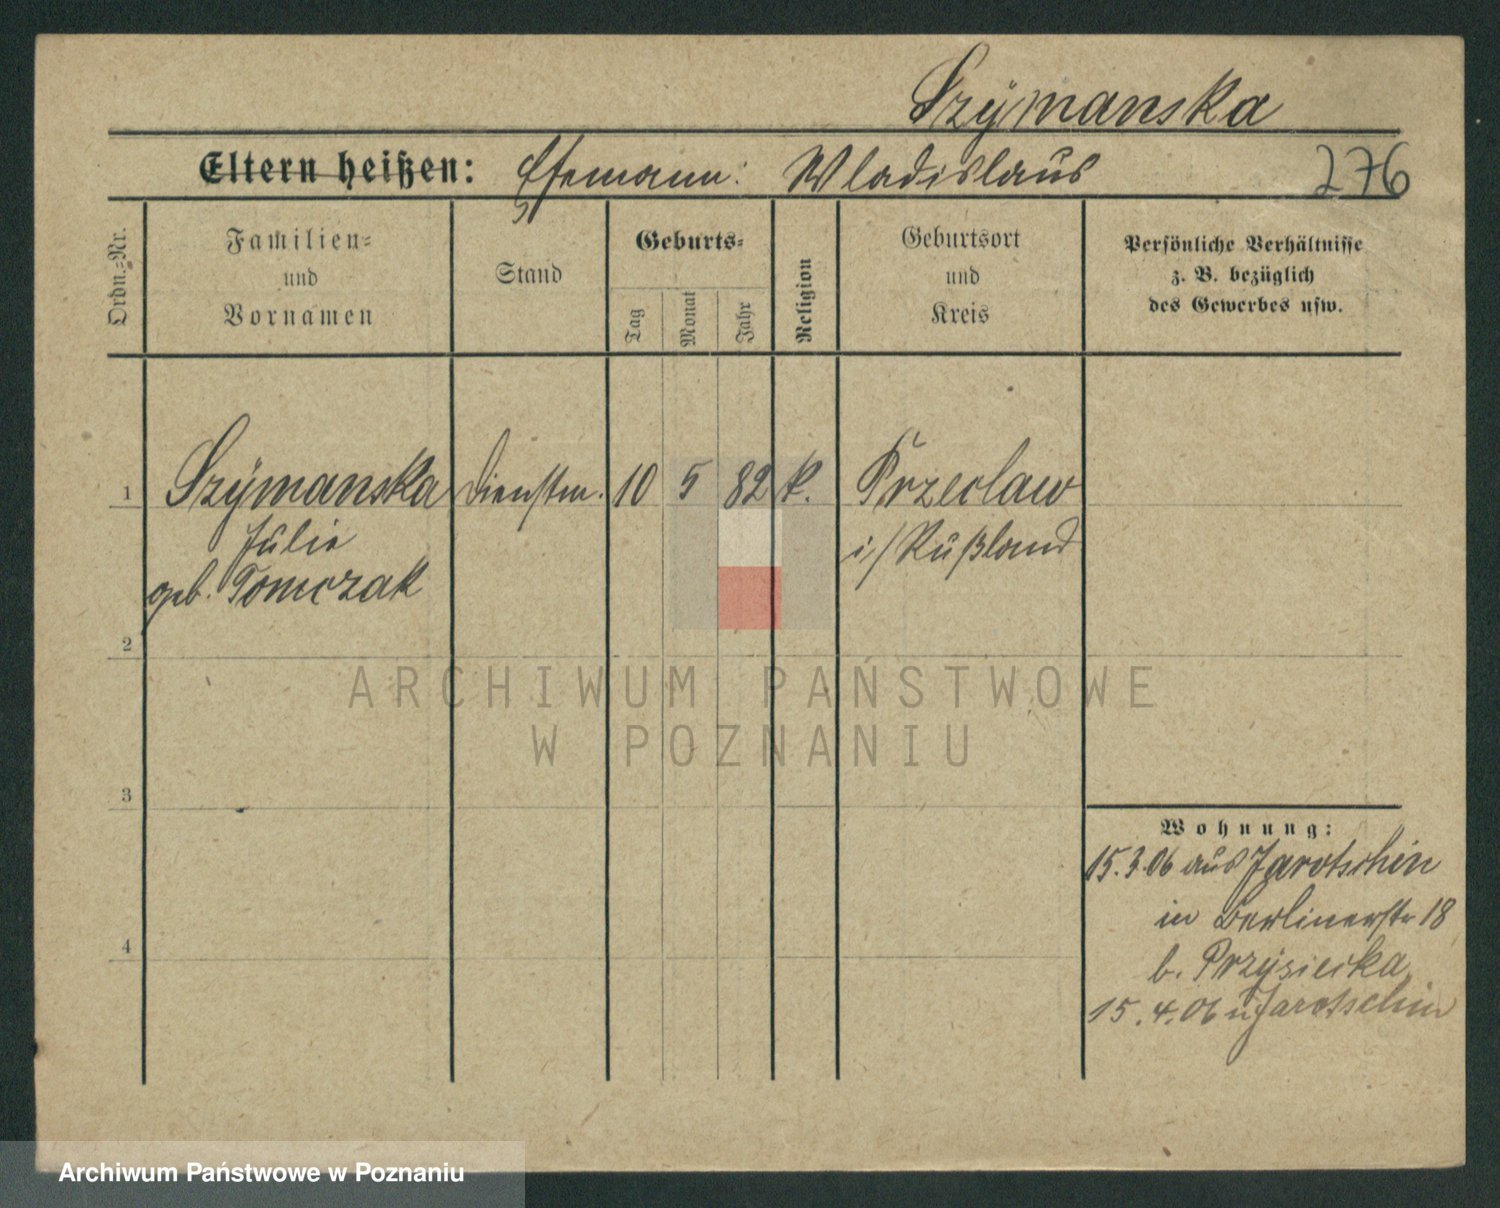 Szÿmanska
Eltern heißen: Ehemann: Wladislaus 276
Ordn.=Nr.
Familien=
und
Vornamen
Stand
Geburts=
Tag
Monat
Jahr
Religion
Geburtsort
und
Kreis
Persönliche Verhältnisse
z. B. bezüglich
des Gewerbes usw.
1 Szÿmanska Dienstm. 10 5 82 k. Przeclaw
Julie i/Rußland
geb. Tomczak
2
ARCHIWUM PAŃSTWOWE
W POZNANIU
3
Wohnung:
15.3.06 aus Jarotschin
in Berlinerstr 18
b. Przÿsiecka
4
15.4.06 n Jarotschin
Archiwum Państwowe w Poznaniu